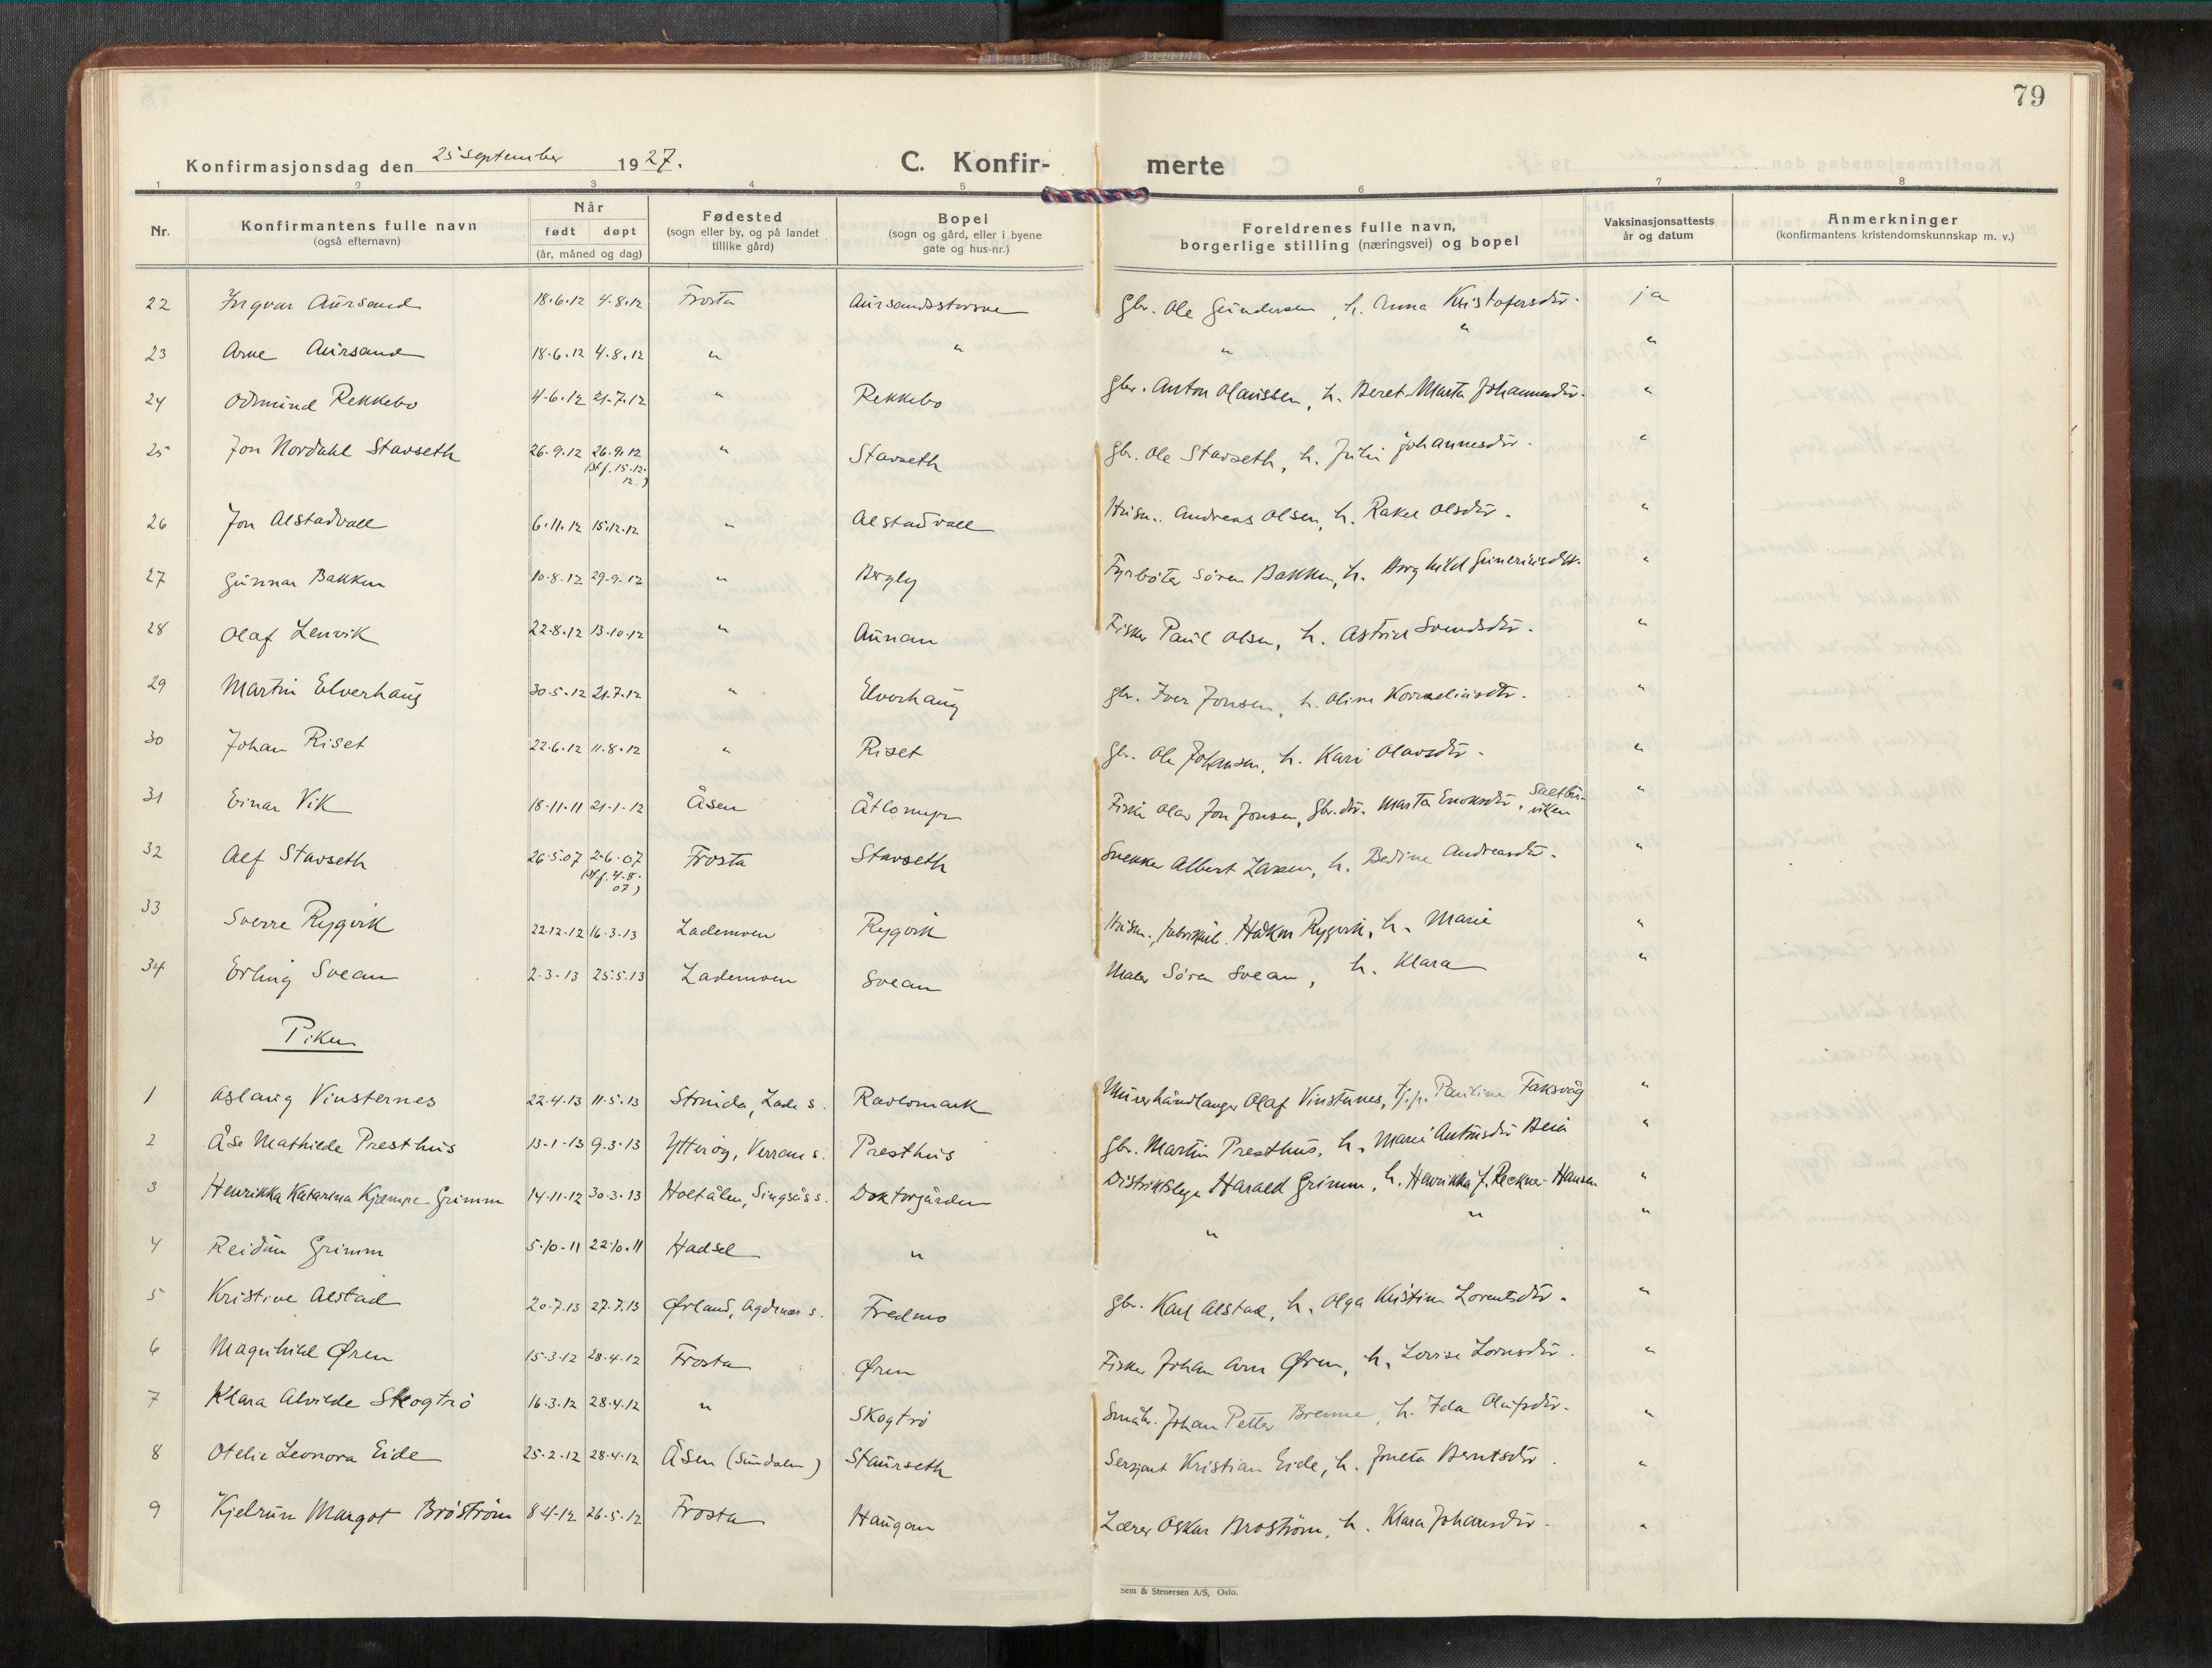 79
Konfirmasjonsdag den 25 september 1927.
C. Konfir- merte
1 2 3 4 5 6 7 8
Nr. Konfirmantens fulle navn (også efternavn) Når født døpt (år, måned og dag) Fødested (sogn eller by, og på landet tillike gård) Bopel (sogn og gård, eller i byene gate og hus-nr.) Foreldrenes fulle navn, borgerlige stilling (næringsvei) og bopel Vaksinasjonsattests år og datum Anmerkninger (konfirmantens kristendomskunnskap m. v.)
22 Ingvar Aursand 18.6.12 4.8.12 Frosta Aursandsstorvne Gbr. Ole Gundersen, h. Anna Kristofersdtr. ja
23 Arne Aursand 18.6.12 4.8.12 " " " " "
24 Odmund Rekkebo 4.6.12 21.7.12 " Rekkebo Gbr. Anton Olaussen, h. Beret-Marta Johannesdtr. "
25 Jon Nordahl Stavseth 26.9.12 26.9.12 (st.f. 15.12.12.) " Stavseth Gbr. Ole Stavseth, h. Julie Johannesdtr. "
26 Jon Alstadvall 6.11.12 15.12.12 " Alstadvall Husm. Andreas Olsen, h. Rakel Olsdtr. "
27 Gunnar Bakken 10.8.12 29.9.12 " Bergly Fyrbøter Søren Bakken, h. Borghild Guneriusdtr. "
28 Olaf Lenvik 22.8.12 13.10.12 " Aunan Fisker Paul Olsen, h. Astrid Svendsdtr. "
29 Martin Elverhaug 30.5.12 21.7.12 " Elverhaug Gbr. Iver Jonsen, h. Oline Korneliusdtr. "
30 Johan Riset 22.6.12 11.8.12 " Riset Gbr. Ole Johansen, h. Kari Olavsdtr. "
31 Einar Vik 18.11.11 21.1.12 Åsen Åtlomyr Fisker Olav Jon Jonsen, Gbr.dtr. Marta Enoksdtr, "
32 Alf Stavseth 26.5.07 2.6.07 (st.f. 4.8.07) Frosta Stavseth Snekker Albert Larsen, h. Bedine Andreasdtr. "
33 Sverre Rygvik 22.12.12 16.3.13 Lademoen Rygvik Husm., Håkon Rygvik, h. Marie "
34 Erling Svean 2.3.13 25.5.13 Lademoen Svean Maler Søren Svean, h. Klara "
Piker
1 Aslaug Vinsternes 22.4.13 11.5.13 Strinda, Lade s. Ravlomark Murerhåndlanger Olaf Vinsternes, Pauline Faksvåg "
2 Åse Mathilde Presthus 13.1.13 9.3.13 Ytterøy, Verran s. Presthus Gbr. Martin Presthus, h. Marie Antonsdtr Beia "
3 Henrikka Katarina Kjempe Grimm 14.11.12 30.3.13 Holtålen, Singsås s. Doktorgården Distriktslege Harald Grimm, h. Henrikka f. Reckner-Hansen "
4 Reidun Grimm 5.10.11 22.10.11 Hadsel " " " "
5 Kristine Alstad 20.7.13 27.7.13 Ørland, Agdenes s. Fredmo Gbr. Karl Alstad, h. Olga Kristine Lorentsdtr. "
6 Magnhild Øren 15.3.12 28.4.12 Frosta Øren Fisker Johan Arn Øren, h. Lovise Lornsdtr. "
7 Klara Alvilde Skogtrø 16.3.12 28.4.12 " Skogtrø Småbr. Johan Petter Brenne, h. Ida Olufsdtr. "
8 Otelie Leonora Eide 25.2.12 28.4.12 Åsen (Sundalen) Staurseth Sersjant Kristian Eide, h. Jonetta Berntsdtr. "
9 Kjelrun Margot Brøstrøm 8.4.12 26.5.12 Frosta Haugan Lærer Oskar Brostrøm, h. Klara Johansdtr. "
Sem & Stenersen A/S, Oslo.